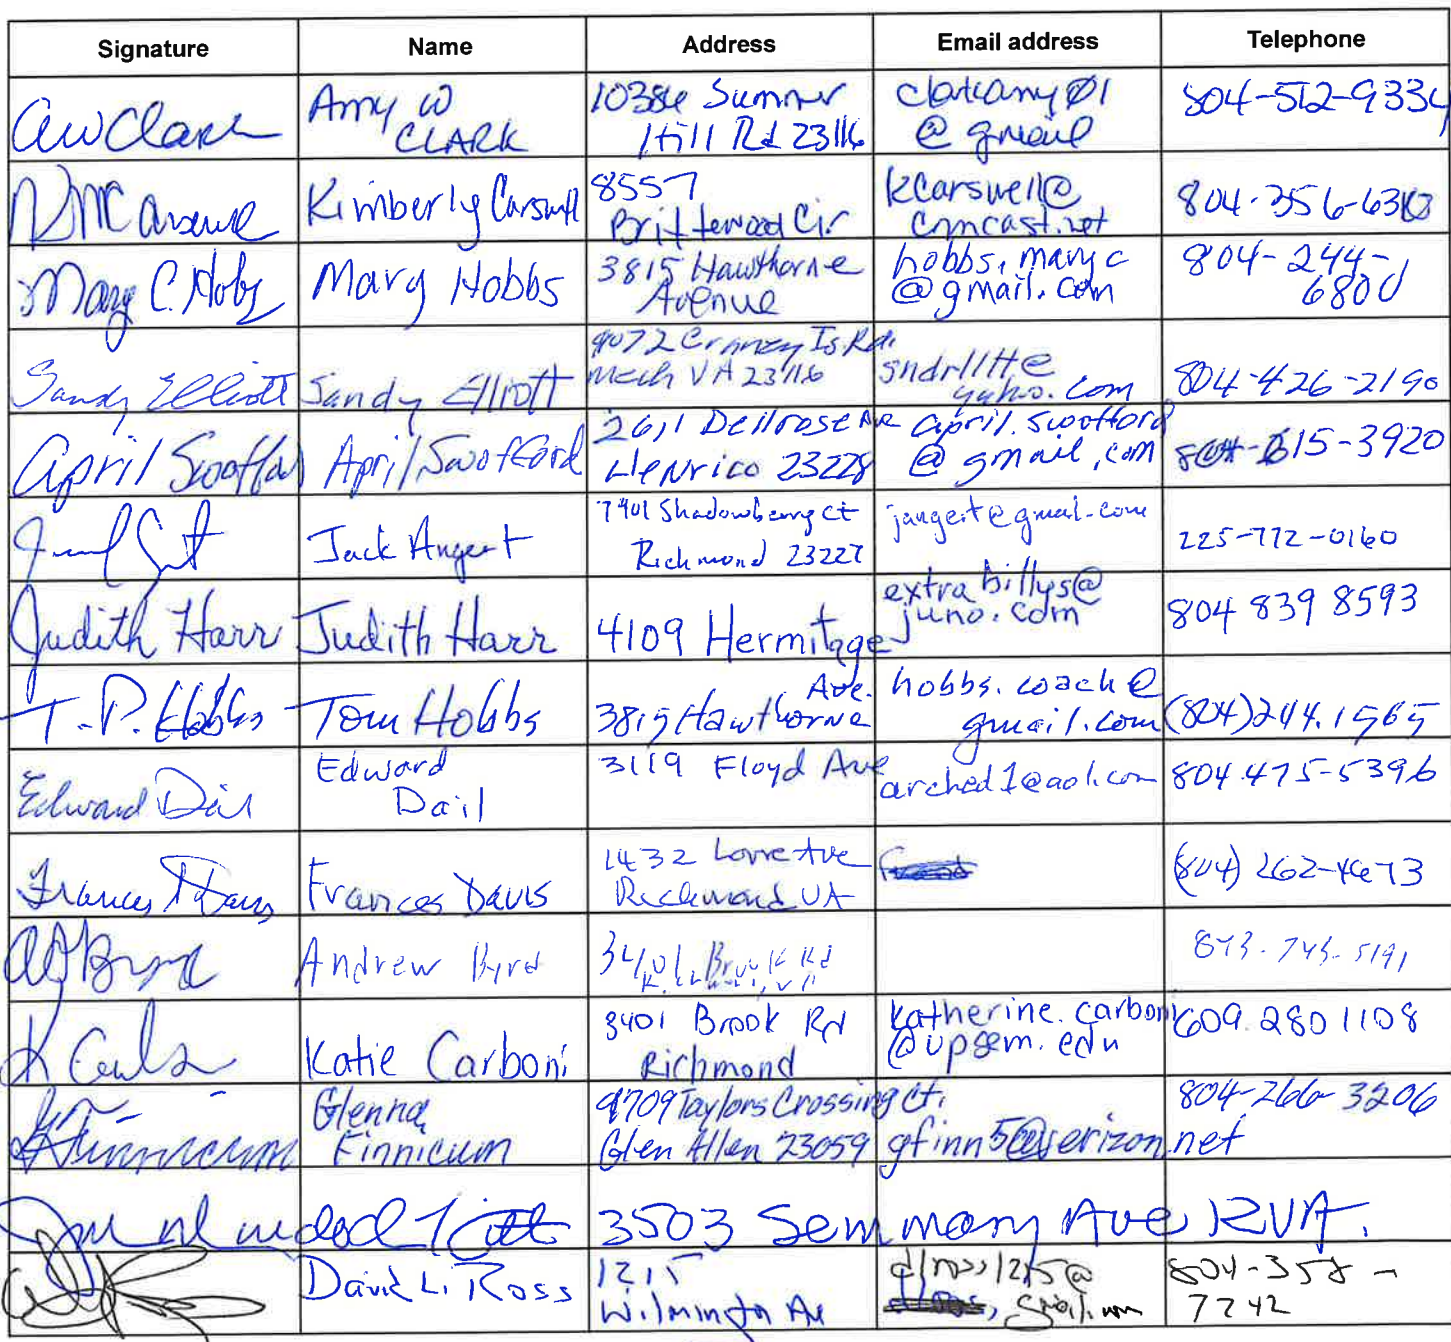 Signature Name Address Email address Telephone
AW Clark Amy W CLARK 10384 Sumner Hill Rd 23116 clarkamy01 @ gmail 804-512-9334
Kimberly Carswell 8557 Brittewood Cir kcarswell@ comcast.net 804-356-63
Mary C. Hobbs Mary Hobbs 3815 Hawthorne Avenue hobbs.mary c @gmail.com 804-244-6800
Sandy Elliott Sandy Elliott 9072 Craney Is. Rd. Mech VA 23116 sndrlltt@ yahoo.com 804-426-2190
April Swofford April Swofford 2611 Dellrose Ave Henrico 23228 april.swofford @ gmail.com 804-615-3920
Jack Angert 7401 Shadowberry Ct Richmond 23227 jangert@gmail.com 225-772-0160
Judith Harr Judith Harr 4109 Hermitage extrabillys@ juno.com 804 839 8593
T.P. Hobbs Tom Hobbs 3815 Hawthorne Ave. hobbs.coach@ gmail.com (804)244.1565
Edward Dail Edward Dail 3119 Floyd Ave arched1@aol.com 804.475-5396
Frances Davis Frances Davis 1432 Ave Richmond VA (804) 262-4673
Andrew Byrd 3401 Brook Rd 843-743-5191
Katie Carboni 3401 Brook Rd Richmond katherine.carboni @upsem.edu 609.280 1108
Finnicum Glenna Finnicum 9709 Taylors Crossing Ct. Glen Allen 23059 gfinn5@verizon.net 804-266-3206
3503 Seminary Ave RVA.
David L. Ross 1215 Wilmington Ave dlross1215@ gmail.com 804-358-7242